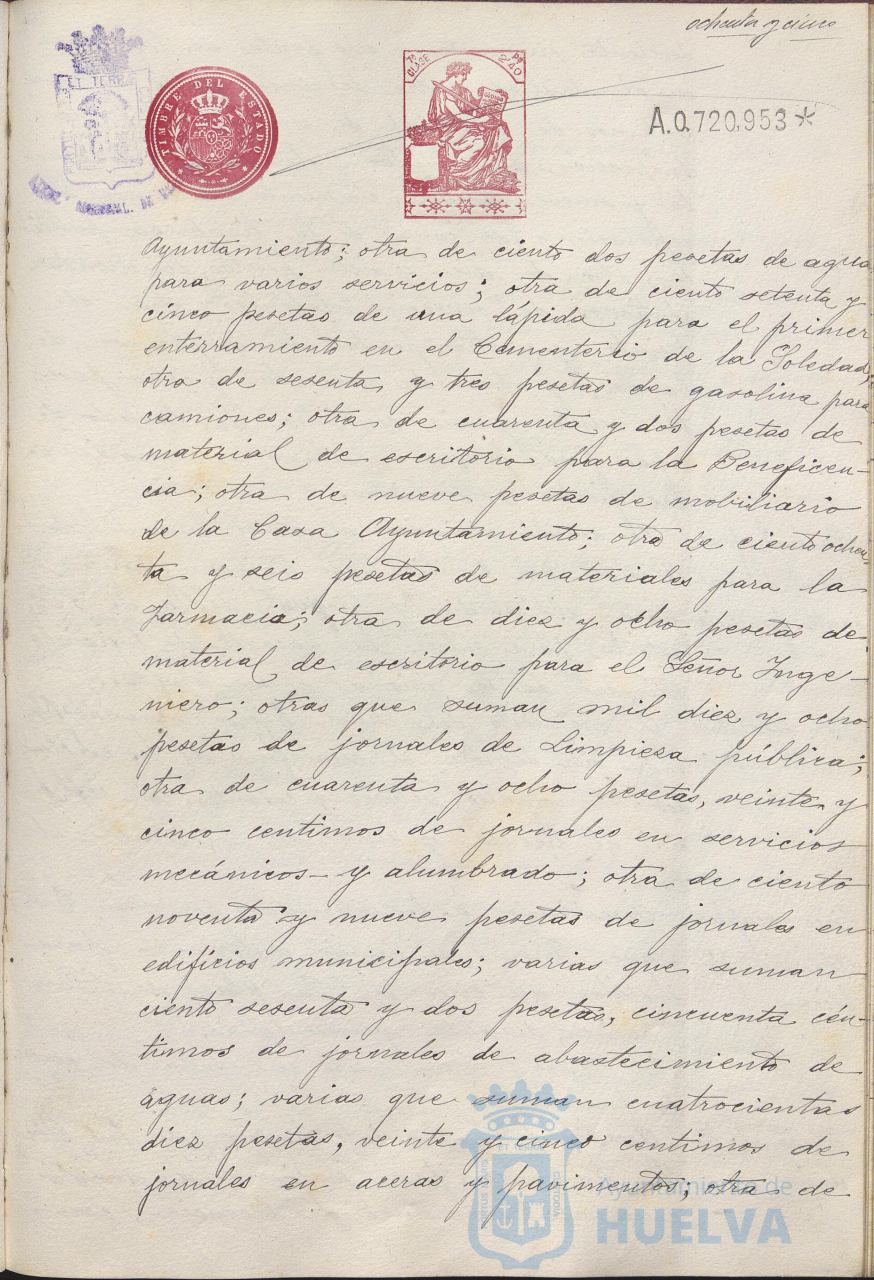 ochenta y cinco
TIMBRE DEL ESTADO
7ª CLASE
2'40
A.0.720,953*
Ayuntamiento; otra de ciento dos pesetas de agua
para varios servicios; otra de ciento setenta y
cinco pesetas de una lápida para el primer
enterramiento en el Cementerio de la Soledad;
otra de sesenta y tres pesetas de gasolina para
camiones; otra de cuarenta y dos pesetas de
material de escritorio para la Beneficen-
cia; otra de nueve pesetas de mobiliario
de la Casa Ayuntamiento; otra de ciento ochen
ta y seis pesetas de materiales para la
Farmacia; otra de diez y ocho pesetas de
material de escritorio para el Señor Inge-
niero; otras que suman mil diez y ocho
pesetas de jornales de Limpieza pública;
otra de cuarenta y ocho pesetas, veinte y
cinco centimos de jornales en servicios
mecánicos y alumbrado; otra de ciento
noventa y nueve pesetas de jornales en
edificios municipales; varias que suman
ciento sesenta y dos pesetas, cincuenta cén-
timos de jornales de abastecimiento de
aguas; varias que suman cuatrocientas
diez pesetas, veinte y cinco centimos de
jornales en aceras y pavimentos; otra de
Ayuntamiento de
HUELVA